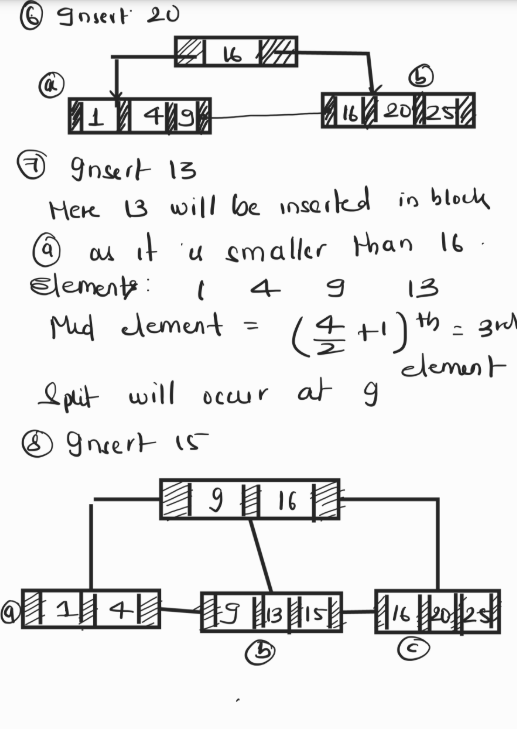 ⑥ Insert 20
16
ⓐ ⓑ
1 4 9 16 20 25
⑦ Insert 13
Here 13 will be inserted in block
ⓐ as it is smaller than 16.
Elements: 1 4 9 13
Mid element = (4/2 +1)th = 3rd
element
Split will occur at 9
⑧ Insert 15
9 16
ⓐ 1 4 9 13 15 16 20 25
ⓑ ⓒ